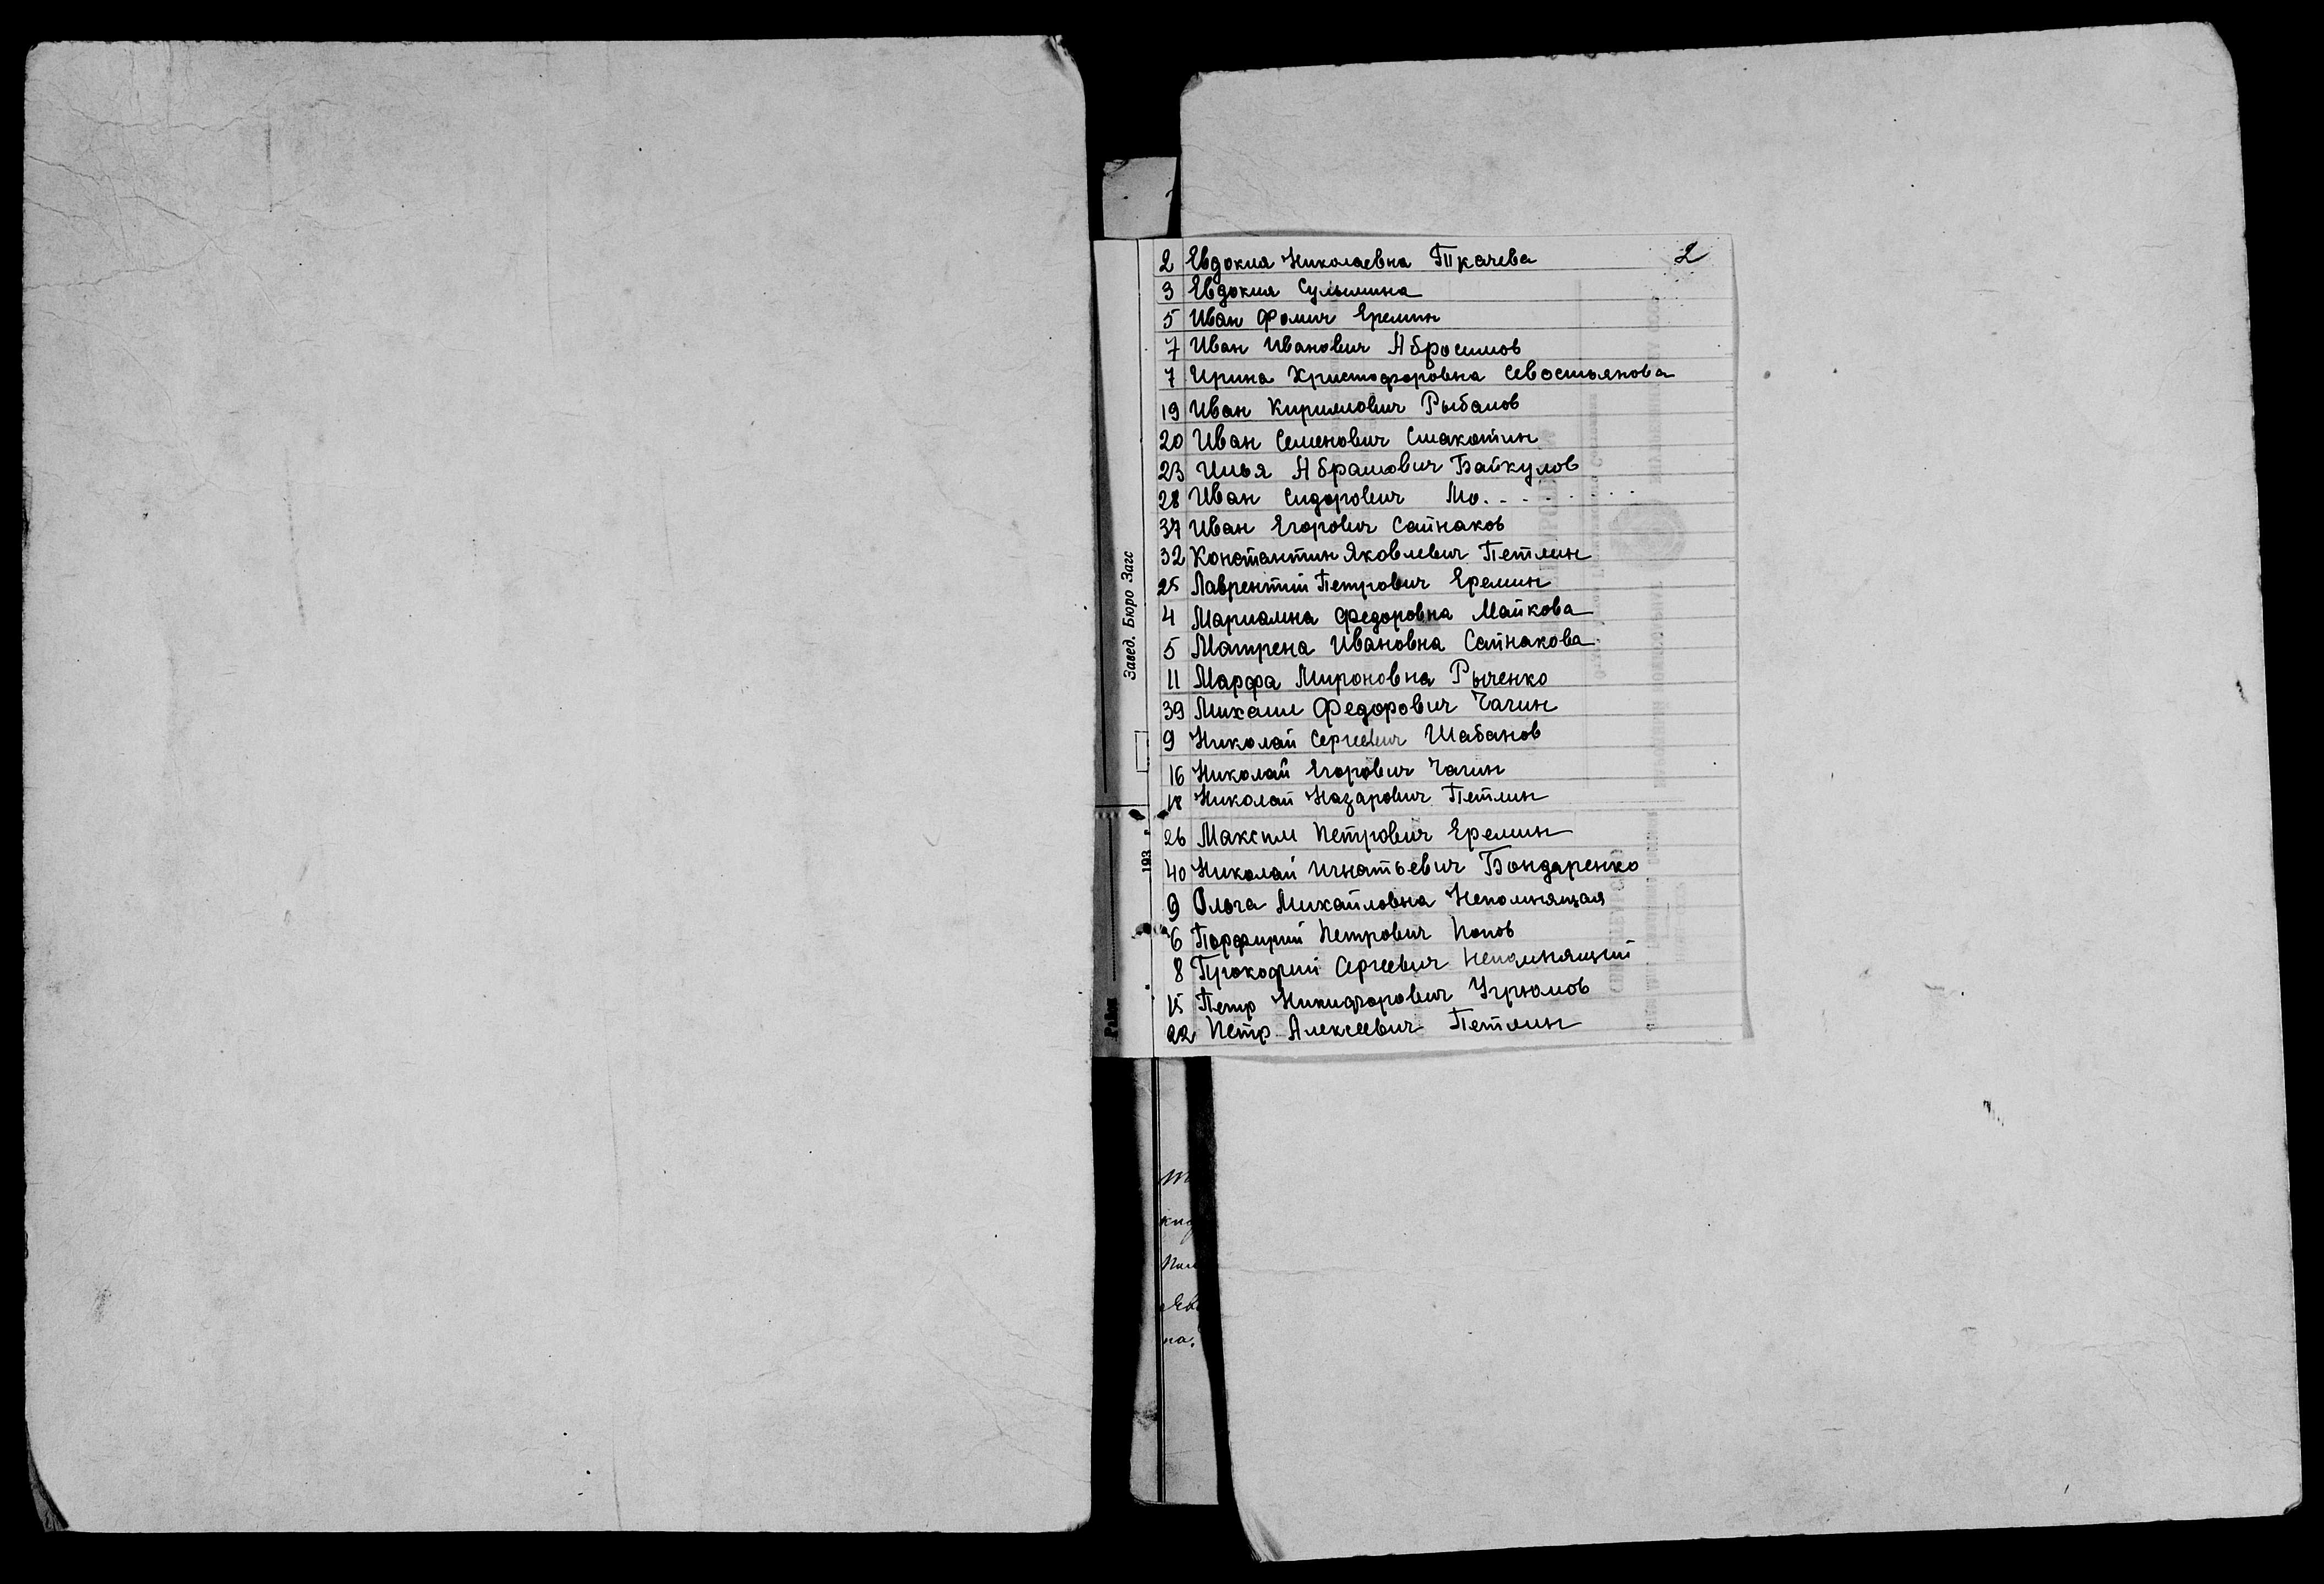 2 Евдокия Николаевна Ткачева 2
3 Евдокия Сулимина
5 Иван Фомич Еремин
7 Иван Иванович Абросимов
7 Ирина Христофоровна Севостьянова
19 Иван Кириллович Рыбалов
20 Иван Семенович Смакотин
23 Илья Абрамович Байкулов
28 Иван Сидорович Мо. . . . . . . .
37 Иван Егорович Сайнаков
32 Константин Яковлевич Петлин
25 Лаврентий Петрович Еремин
4 Мариамна Федоровна Майкова
5 Матрена Ивановна Сайнакова
11 Марфа Мироновна Рыченко
39 Михаил Федорович Чагин
9 Николай Сергеевич Шабанов
16 Николай Егорович Чагин
18 Николай Назарович Петлин
26 Максим Петрович Еремин
40 Николай Игнатьевич Бондаренко
9 Ольга Михайловна Непомнящая
6 Порфирий Петрович Попов
8 Прокофий Сергеевич Непомнящий
15 Петр Никифорович Угрюмов
22 Петр Алексеевич Петлин
Завед. Бюро Загс
193
Район